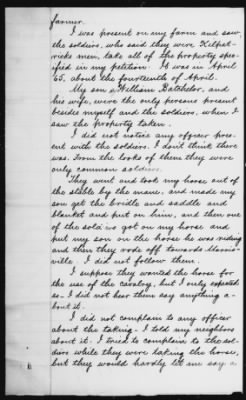 farmer.
I was present on my farm and saw,
the soldiers, who said they were Kilpat-
ricks men, take all of the property spe-
cified in my petition. It was in April
65, about the fourteenth of April.
My son, William Batchelor, and
his wife, were the only persons present
besides myself and the soldiers, when I
saw the property taken.
I did not notice any officer pres-
ent with the soldiers. I don't think there
was. From the looks of them they were
only common soldiers.
They went and took my horse out of
the stable by the mane, and made my
son get the bridle and saddle and
blanket and put on him, and then one
of the soldiers got on my horse and
put my son on the horse he was riding
and then they rode off towards Morris-
ville. I did not follow them.
I suppose they wanted the horse for
the use of the cavalry, but I only expected
so - I did not hear them say anything a-
bout it.
I did not complain to any officer
about the taking. I told my neighbors
about it. I tried to complain to the sol-
diers while they were taking the horse,
but they would hardly let me say a